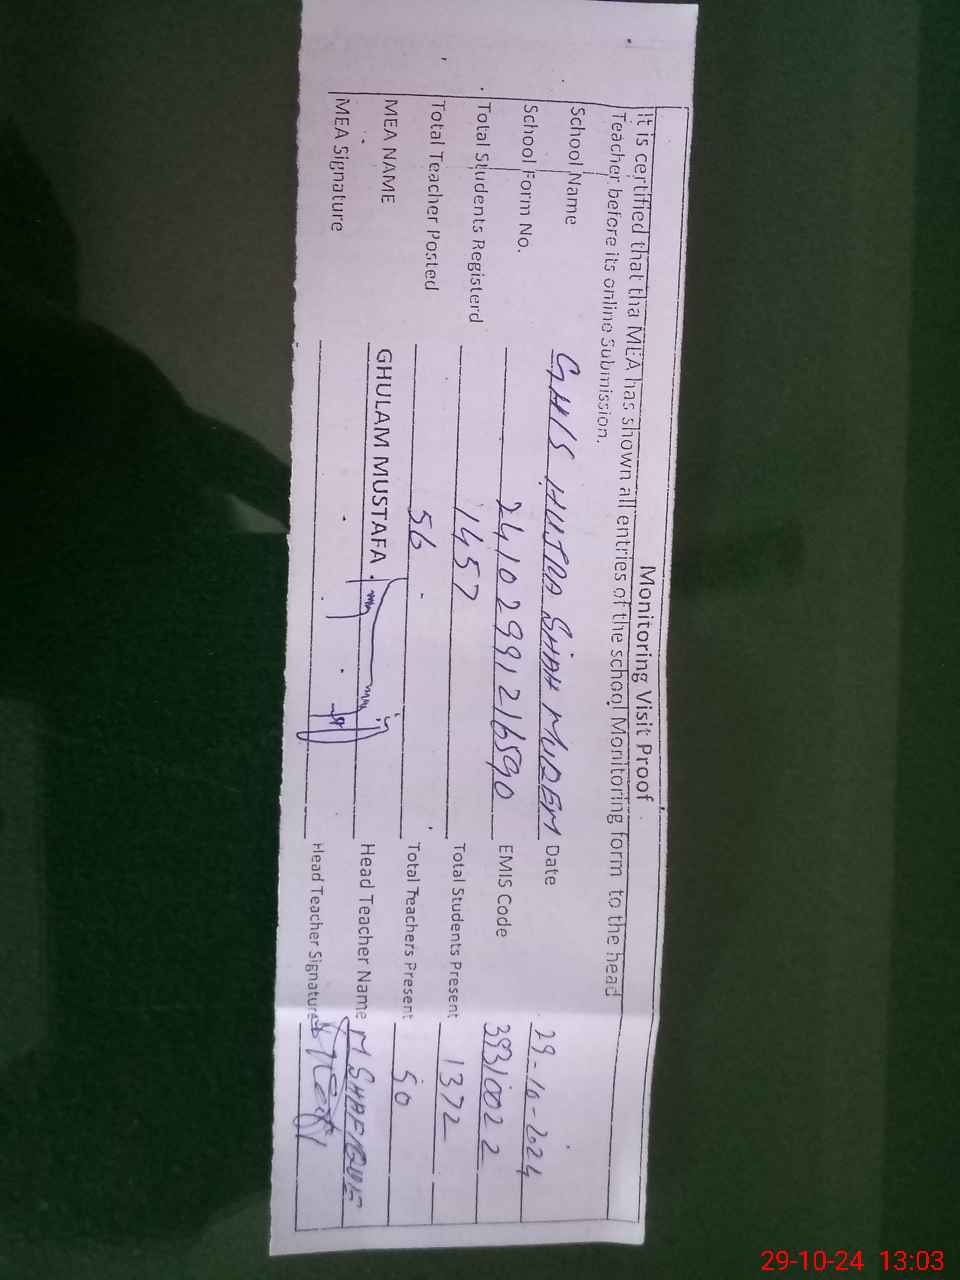 Monitoring Visit Proof
It is certified that tha MEA has shown all entries of the school Monitoring form to the head
Teacher before its online Submission.
School Name GHIS HUTRA SHAH MUQEM Date 29-10-2024
School Form No. 24102991216590 EMIS Code 39310022
Total Students Registerd 1457 Total Students Present 1372
Total Teacher Posted 56 Total Teachers Present 50
MEA NAME GHULAM MUSTAFA Head Teacher Name M SHAFIQUE
MEA Signature Head Teacher Signature
29-10-24 13:03